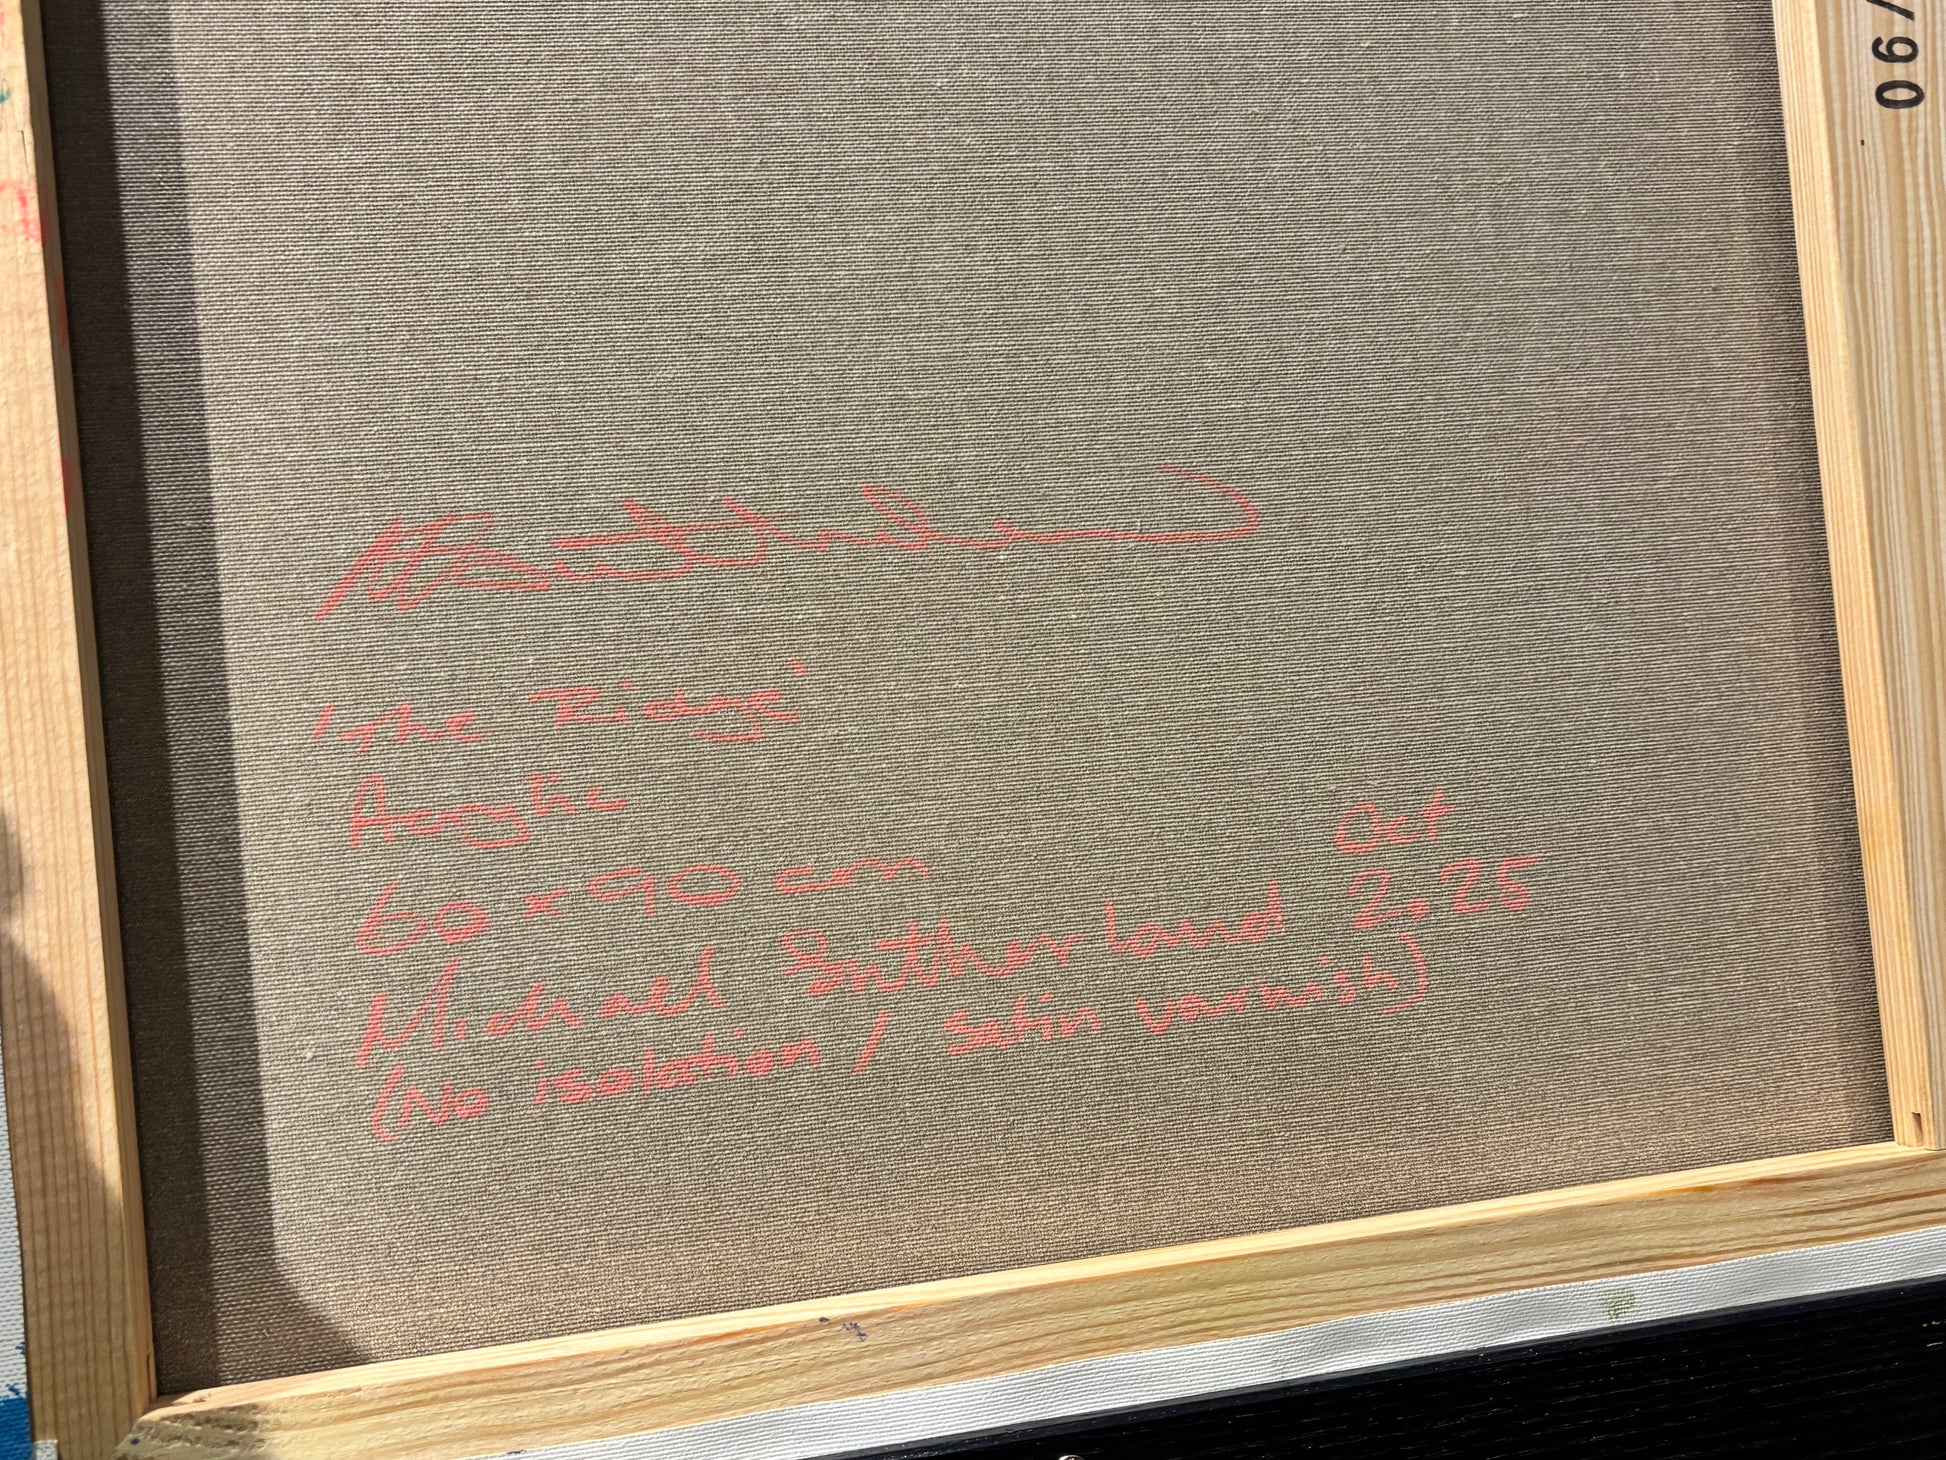 /90
MSutherland
'The Ridge'
Acrylic
60 x 90 cm
Oct
Michael Sutherland 2025
(No isolation / Satin varnish)